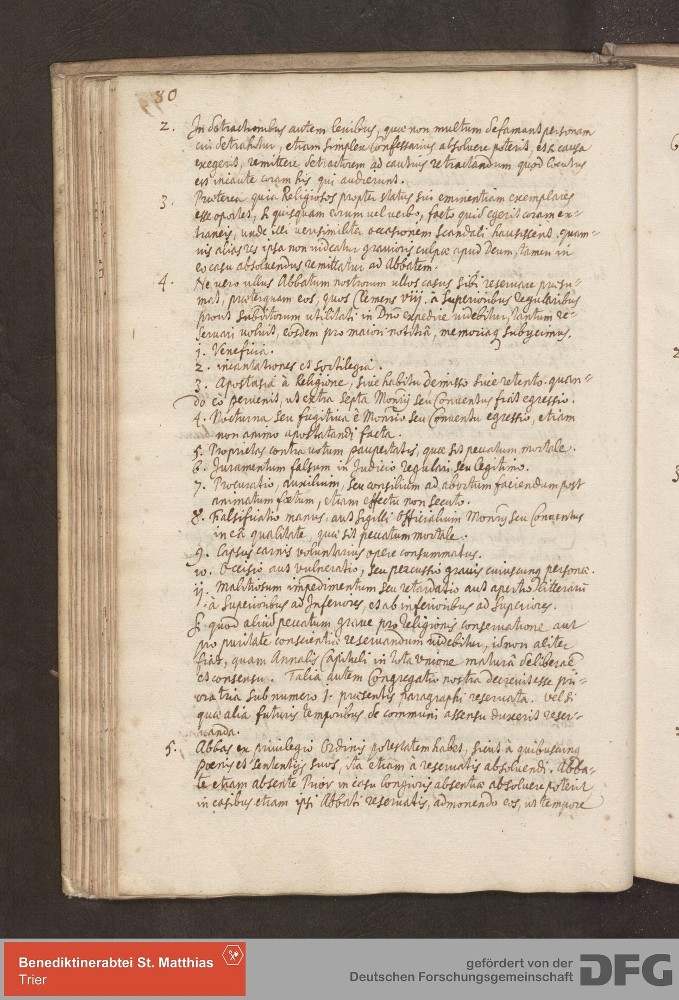 80
2. In detractionibus autem levibus, quæ non multum defamant personam
cui detrahitur, etiam simplex Confessarius absolvere poterit, et causa
exegerit, remittere detractorem ad cautius retractandum quod locutus
est incaute coram his qui audierunt.
3. Præterea quia Religiosos propter status sui eminentiam exemplares
esse oportet, si quisquam eorum vel verbo, facto quid egerit coram ex-
traneis, unde illi verisimiliter occasionem scandali hausissent, quam-
vis alias res ipsa non videatur gravioris culpæ apud Deum, tamen in
eo casu absolvendus remittatur ad Abbatem.
4. Ne vero ullus Abbatum nostrorum ullos casus sibi reservare præsu-
mat, præterquam eos, quos Clemens viij. à Superioribus regularibus
prout subditorum utilitati in Dno expedire videbitur, tantum re-
servari voluit, eosdem pro maiori notitiâ, memoriaq subijcimus.
1. Veneficia.
2. incantationes et sortilegia.
3. Apostasia à Religione, sive habitu demisso sive retento, quan-
do eò pervenit, ut extra septa Monrij seu Conventus fiat egressio.
4. Nocturna seu fugitiva è Monrio seu Conventu egressio, etiam
non animo apostatandi facta.
5. Proprietas contra votum paupertatis, quæ sit peccatum mortale.
6. Juramentum falsum in Judicio regulari seu legitimo.
7. Procuratio, auxilium, seu consilium ad abortum faciendum post
animatum fœtum, etiam effectu non secuto.
8. Falsificatio manus, aut sigilli Officialium Monrij seu Conventus
in eâ qualitate, quæ sit peccatum mortale.
9. Lapsus carnis voluntarius opere consummatus.
10. Occisio aut vulneratio, seu percussio gravis cuiuscunq personæ.
ij. Malitiosum impedimentum seu retardatio aut apertio litterarū
à Superioribus ad Inferiores, et ab inferioribus ad Superiores.
Si quod aliud peccatum grave pro religionis conservatione aut
pro puritate conscientiæ reservandum videbitur, id non aliter
fiat, quam Annalis Capituli in tota Unione matura deliberaē
et consensu. Talia autem Congregatio nostra decrevit esse pri-
ora tria sub numero 1. præsentis paragraphi reservata. vel si
quæ alia futuris temporibus de communi assensu duxerit reser-
vanda.
5. Abbas ex privilegio Ordinis potestatem habet, sicut à quibuscunq
poenis et sententijs suos, ita etiam à reservatis absolvendi. Abba-
te etiam absente Prior in casu longioris absentiæ absolvere poterit
in casibus etiam ipsi Abbati reservatis, admonendo eos, ut tempore
Benediktinerabtei St. Matthias
Trier
gefördert von der
Deutschen Forschungsgemeinschaft
DFG